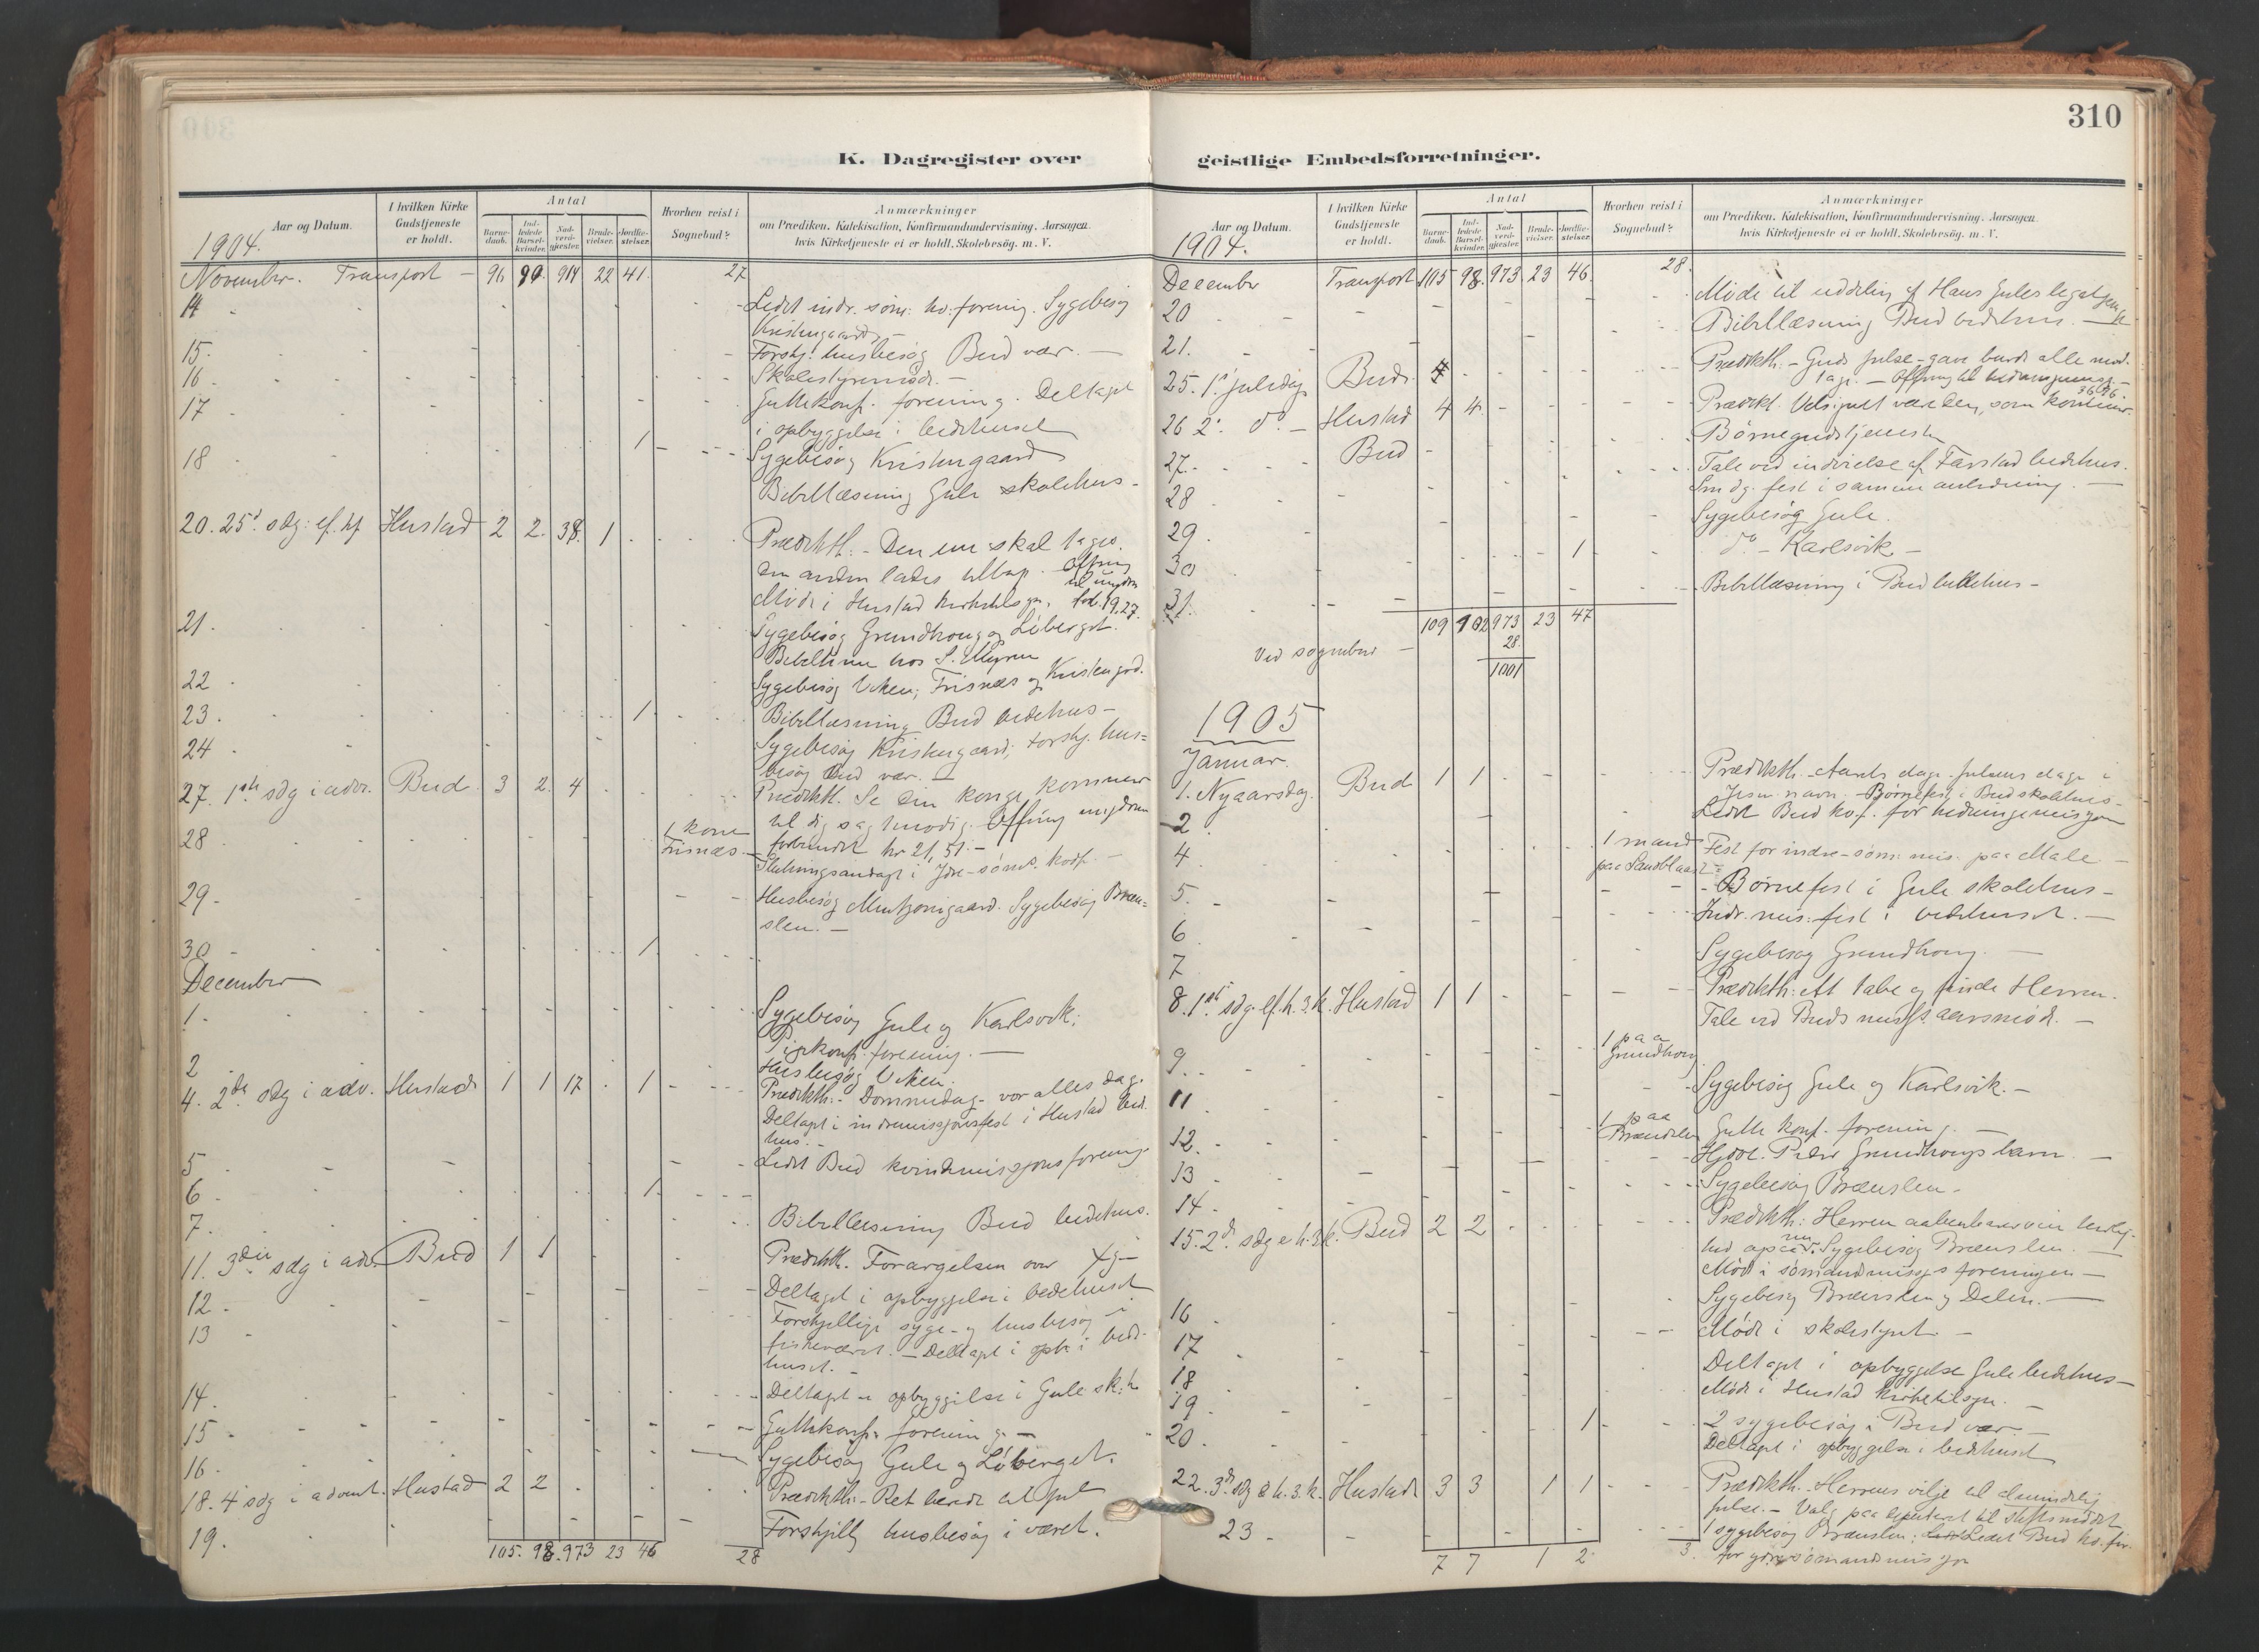 310
K. Dagregister over
geistlige Embedsforretninger.
Aar og Datum.
I hvilken Kirke Gudstjeneste er holdt.
Antal
Barne-daab.
Ind-ledede Barsel-kvinder.
Nad-verd-gjester.
Brude-vielser.
Jordfæ-stelser.
Hvorhen reist i Sognebud?
Anmærkninger
om Prædiken, Katekisation, Konfirmandundervisning, Aarsagen,
hvis Kirketjeneste ei er holdt, Skolebesøg. m. V.
1904.
November. Transport - 96 90 914 22 41. 27
14 Ledet indr. søm. kv. forening. Sygebesøg
Kristengaard. -
15. Forskj. husbesøg Bud vær. -
16. Skolestyremøde. -
17 Guttekonf. forening. Deltaget
i opbyggelse i bedehuset
18 1 Sygebesøg Kristengaard
Bibellæsning Gule skolehus -
20. 25d. sdg. ef. tf Hustad 2 2. 38. 1 Prædikth. - Den ene skal tages.
den anden lades tilbage. Ofring
til ungdom
Møde i Hustad kirketilsyn. 19.27.
21. Sygebesøg Grundhaug og Løberget.
Bibeltime hos S. Myren
22 Sygebesøg Viken, Frisnes og
23. 1 Bibellæsning Bud bedehus -
24 Sygebesøg Kristengaard; forskj. hus=
besøg Bud vær. -
27. 1ste sdg i adv. Bud 3 2. 4 Prædikth. Se din konge kommer
til dig sagtmodig. Offring ungdom
28 1 kone
Frisnæs forbundet kr 21,51. -
Slutningsandagt i
29 - Husbesøg Sygebesøg Bræn=
slen. -
30 1
December
1 - Sygebesøg Gule og Karlsvik.
Pigekonf. forening. -
2 Husbesøg Viken.
4. 2den sdg i adv. Hustad 1 1 17 1 Prædikth. - Dommedag - vor alles dag.
Deltaget i indremissjonsfest i Hustad bed.
hus. -
5 Ledet Bud kvindemissjonsforening.
6 1
7. Bibellæsning Bud bedehus.
11. 3die sdg i adv. Bud 1 1 Prædikth. Forargelsen over
12. Deltaget i opbyggelse i bedehuset
13 Forskjellige syge- og husbesøg i
fiskeværet. - Deltaget i opb. i bede-
huset. -
14. Deltaget i opbyggelse i Gule sk. h.
15 Guttekonf. forening. -
16. Sygebesøg Gule og Løberget.
18. 4 sdg i advent. Hustad 2 2 Prædikth. - Ret beredt til jul
19. Forskjellig husbesøg i været.
105. 98. 973 23 46 28
Aar og Datum.
I hvilken Kirke Gudstjeneste er holdt.
Antal
Barne-daab.
Ind-ledede Barsel-kvinder.
Nad-verd-gjester.
Brude-vielser.
Jordfæ-stelser.
Hvorhen reist i Sognebud?
Anmærkninger
om Prædiken, Katekisation, Konfirmandundervisning, Aarsagen,
hvis Kirketjeneste ei er holdt, Skolebesøg. m. V.
1904.
December Transport 105 98. 973. 23 46 28.
20 Møde til uddeling af Hans Gules legat
21. Bibellæsning Bud bedehus. -
25. 1ste juledag Bud. Prædikth. - Guds jule-gave burde alle mod.
tage. - Offring til hedningemis. -
36.96.
26 2. do. - Hustad 4 4. Prædikt. Velsignet være den, som kommer.
27. Bud Børnegudstjeneste
28 Tale ved indvielse af Farstad bedehus.
Sm dg. fest i samme anledning. -
29. Sygebesøg Gule.
30 1 do - Karlsvik -
31. Bibellæsning i Bud bedehus -
109 102 973 23 47
Ved sognebud - 28
1001
1905
Januar.
1. Nyaarsdag. Bud 1 1 Prædikth. - Aarets dage julens dage i
Jesu navn. - Børnefest i Bud skolehus -
2 Ledet Bud kv. f. for hedningemisjon
4 1 mand
paa Sandblaast Fest for indre-søm. mis. paa Male -
5. Børnefest i Gule skolehus -
6 Indr. mis. fest i bedehuset. -
7 Sygebesøg Grundhaug. -
8. 1ste sdg. ef. h. 3. k. Hustad 1 1 Prædikth: At tabe og finde Herren.
Tale ved Buds aarsmøde. -
9. 1 paa
Grundhaug
11 Sygebesøg Gule og Karlsvik. -
12. 1 paa
Brændslen Gutte konf. forening. -
13 Hjdøbt. Peder Grundhaugs barn. -
14. Sygebesøg Brænslen -
15. 2d. sdg e. h. 3 k. Bud 2 2 Prædikth: Herren aabenbarer sin herlig-
hed Sygebesøg Brænslen. -
Møde i sømandsmissjs foreningen -
16 Sygebesøg Brænslen og Dalen. -
17 Møde i skolestyret -
18 Deltaget i opbyggelse Gule bedehus -
19 Møde i Hustad kirketilsyn. -
20. 1 2 sygebesøg i Bud vær. -
Deltaget i opbyggelse i bedehuset
22. 3d. sdg e h. 3. k. Hustad 3 3 1 1 Prædikth. - Herrens vilje til
julse. - Valg paa deputeret til stiftsmødet
23 - 1 sygebesøg Brænslen. Ledet Bud kv. for.
for ydre sømandsmisjon
7 7 1 2. 3.